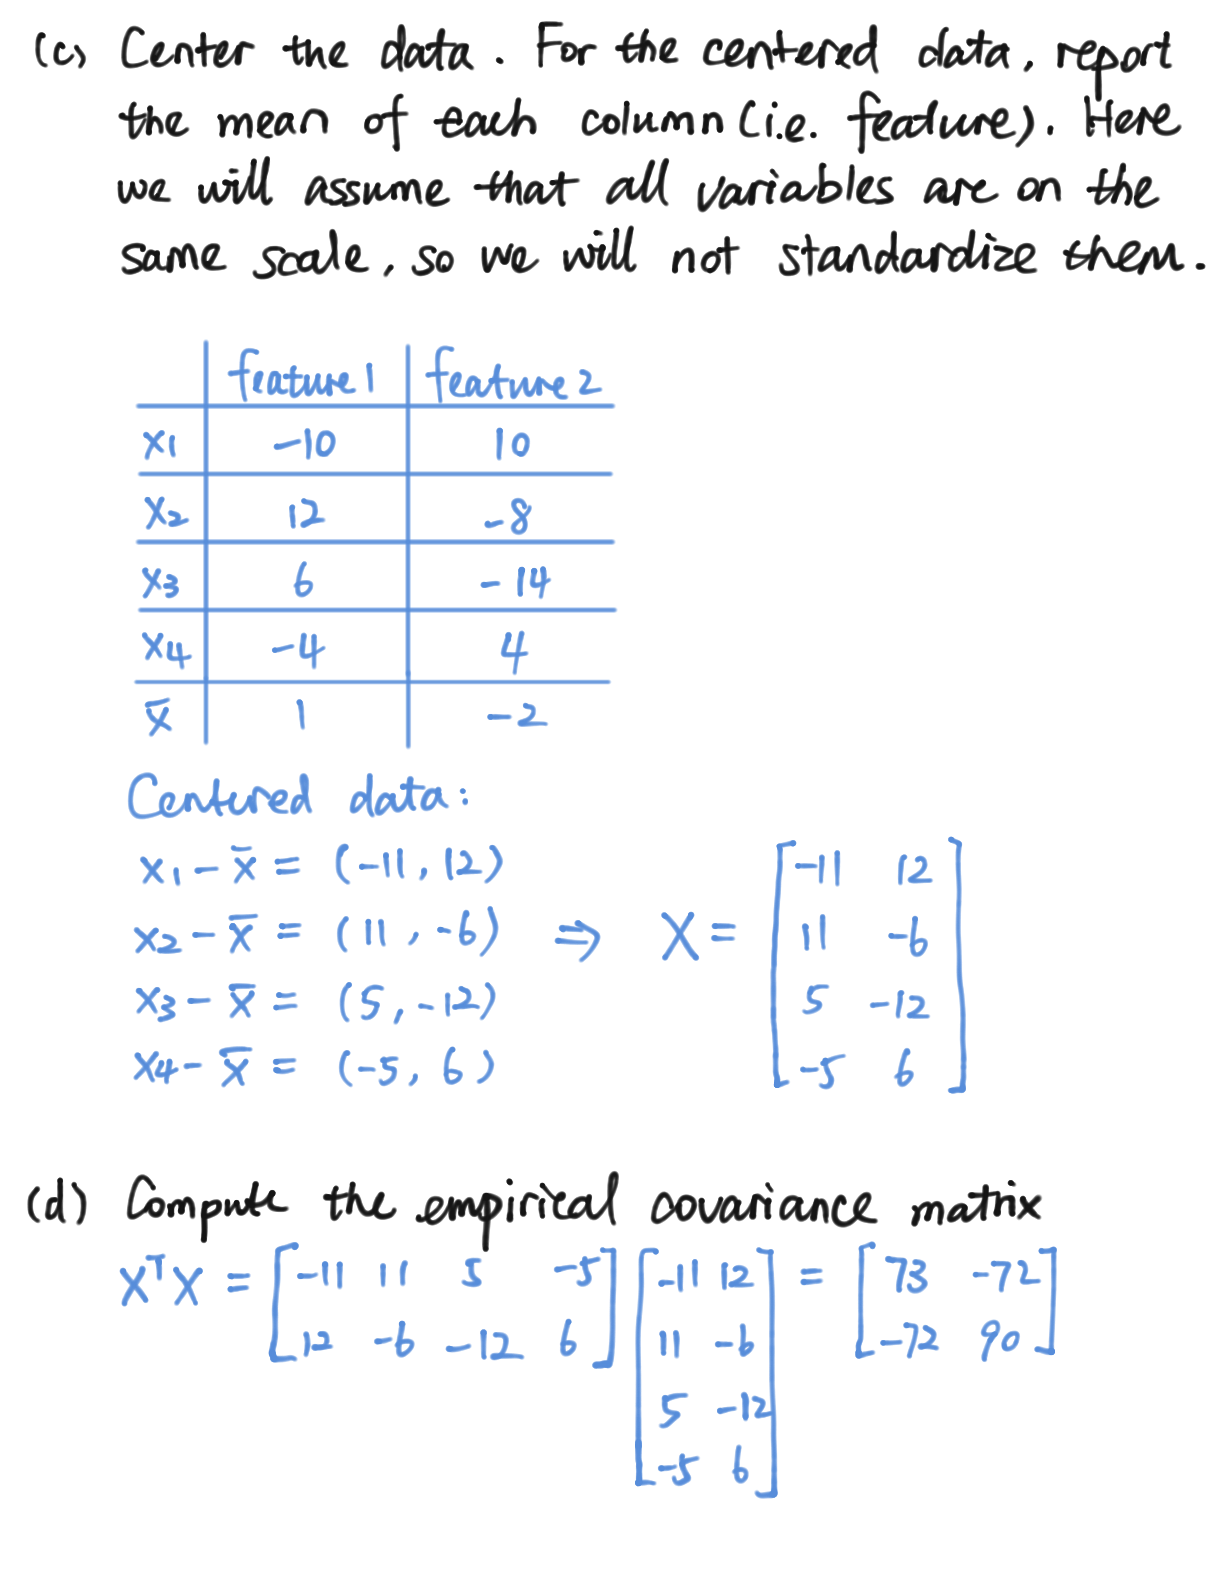 (c) Center the data. For the centered data, report
the mean of each column (i.e. feature). Here
we will assume that all variables are on the
same scale, so we will not standardize them.
feature 1 feature 2
x1 -10 10
x2 12 -8
x3 6 -14
x4 -4 4
x̄ 1 -2
Centered data:
x1 - x̄ = (-11, 12)
x2 - x̄ = (11, -6) ⇒ X = [-11 12
11 -6
5 -12
-5 6]
x3 - x̄ = (5, -12)
x4 - x̄ = (-5, 6)
(d) Compute the empirical covariance matrix
XᵀX = [-11 11 5 -5
12 -6 -12 6] [-11 12
11 -6
5 -12
-5 6] = [73 -72
-72 90]